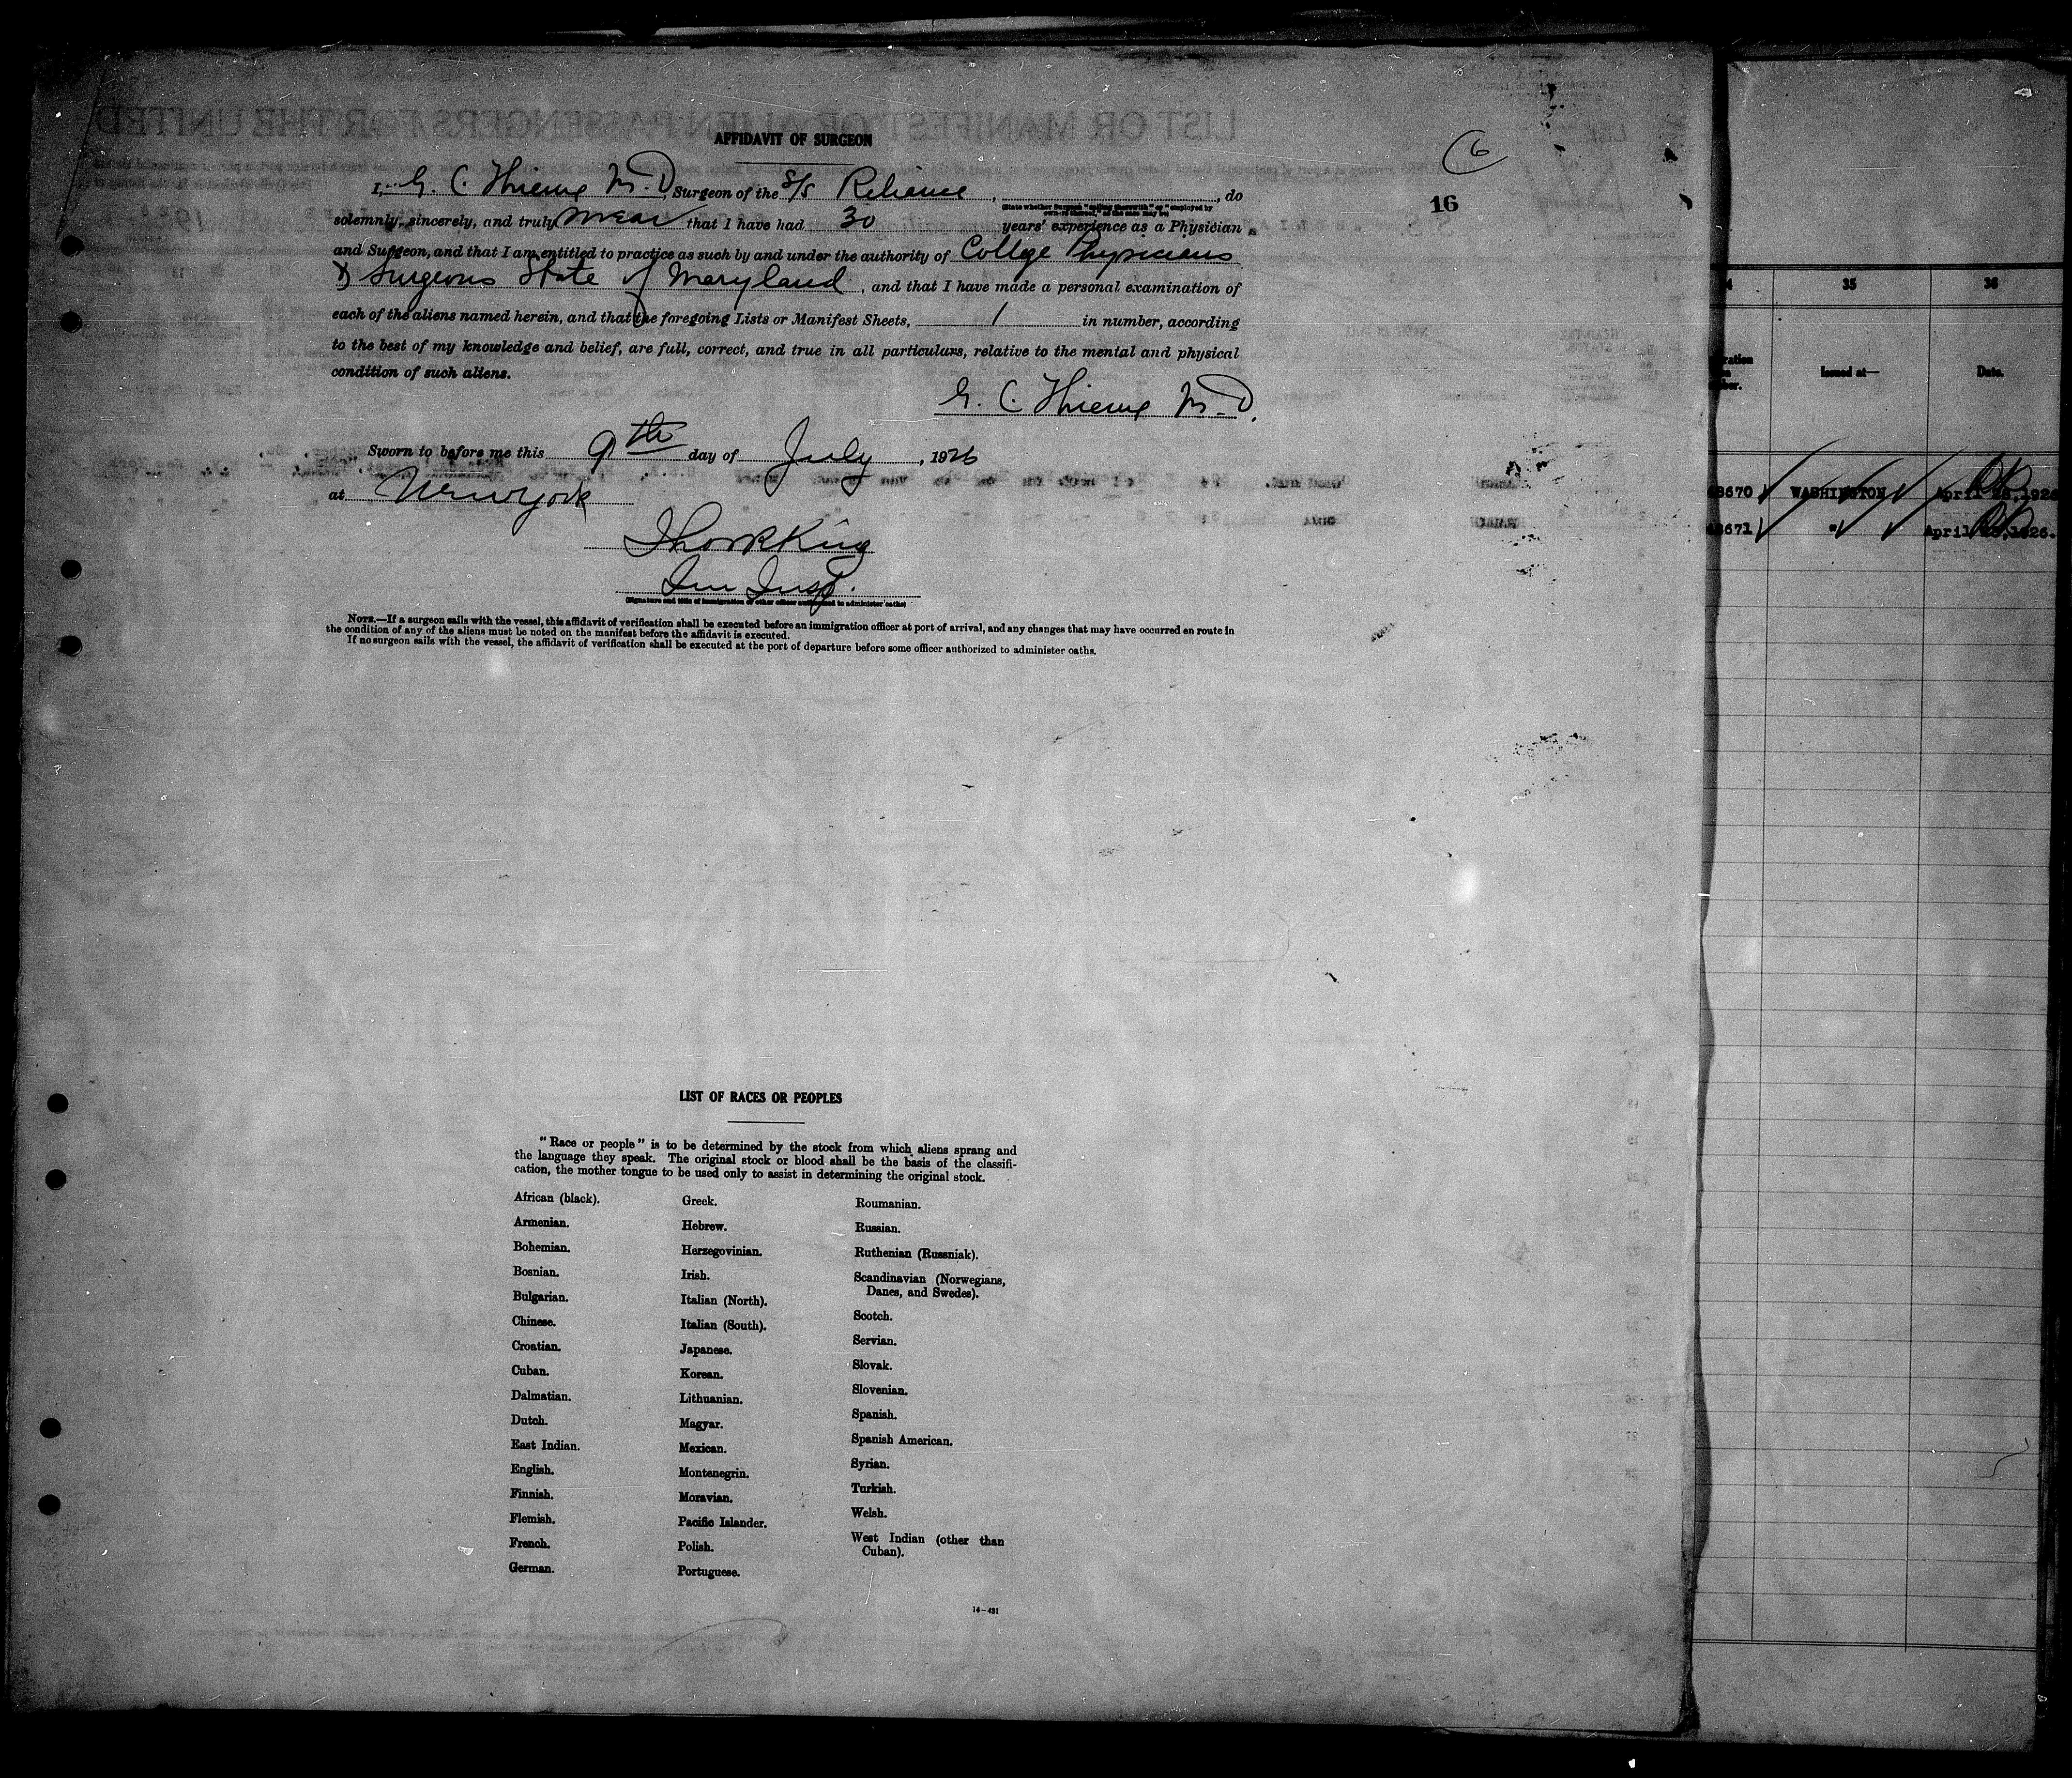 AFFIDAVIT OF SURGEON
6
16
I, G. C. Thieme M.D., Surgeon of the S/S Reliance, , do
(State whether Surgeon "sailing therewith" or "employed by
owners thereof," as the case may be)
solemnly, sincerely, and truly swear that I have had 30 years' experience as a Physician
and Surgeon, and that I am entitled to practice as such by and under the authority of College Physicians
& Surgeons State of Maryland, and that I have made a personal examination of
each of the aliens named herein, and that the foregoing Lists or Manifest Sheets, 1 in number, according
to the best of my knowledge and belief, are full, correct, and true in all particulars, relative to the mental and physical
condition of such aliens.
G. C. Thieme M.D.
Sworn to before me this 9th day of July, 1926
at New York
King
Im Insp.
(Signature and title of immigration or other officer authorized to administer oaths)
NOTE.—If a surgeon sails with the vessel, this affidavit of verification shall be executed before an immigration officer at port of arrival, and any changes that may have occurred en route in
the condition of any of the aliens must be noted on the manifest before the affidavit is executed.
If no surgeon sails with the vessel, the affidavit of verification shall be executed at the port of departure before some officer authorized to administer oaths.
LIST OF RACES OR PEOPLES
"Race or people" is to be determined by the stock from which aliens sprang and
the language they speak. The original stock or blood shall be the basis of the classifi-
cation, the mother tongue to be used only to assist in determining the original stock.
African (black).
Armenian.
Bohemian.
Bosnian.
Bulgarian.
Chinese.
Croatian.
Cuban.
Dalmatian.
Dutch.
East Indian.
English.
Finnish.
Flemish.
French.
German.
Greek.
Hebrew.
Herzegovinian.
Irish.
Italian (North).
Italian (South).
Japanese.
Korean.
Lithuanian.
Magyar.
Mexican.
Montenegrin.
Moravian.
Pacific Islander.
Polish.
Portuguese.
Roumanian.
Russian.
Ruthenian (Russniak).
Scandinavian (Norwegians,
Danes, and Swedes).
Scotch.
Servian.
Slovak.
Slovenian.
Spanish.
Spanish American.
Syrian.
Turkish.
Welsh.
West Indian (other than
Cuban).
14-431
35 36
Issued at— Date.
8670 WASHINGTON April 1926
8671 " April 1926.